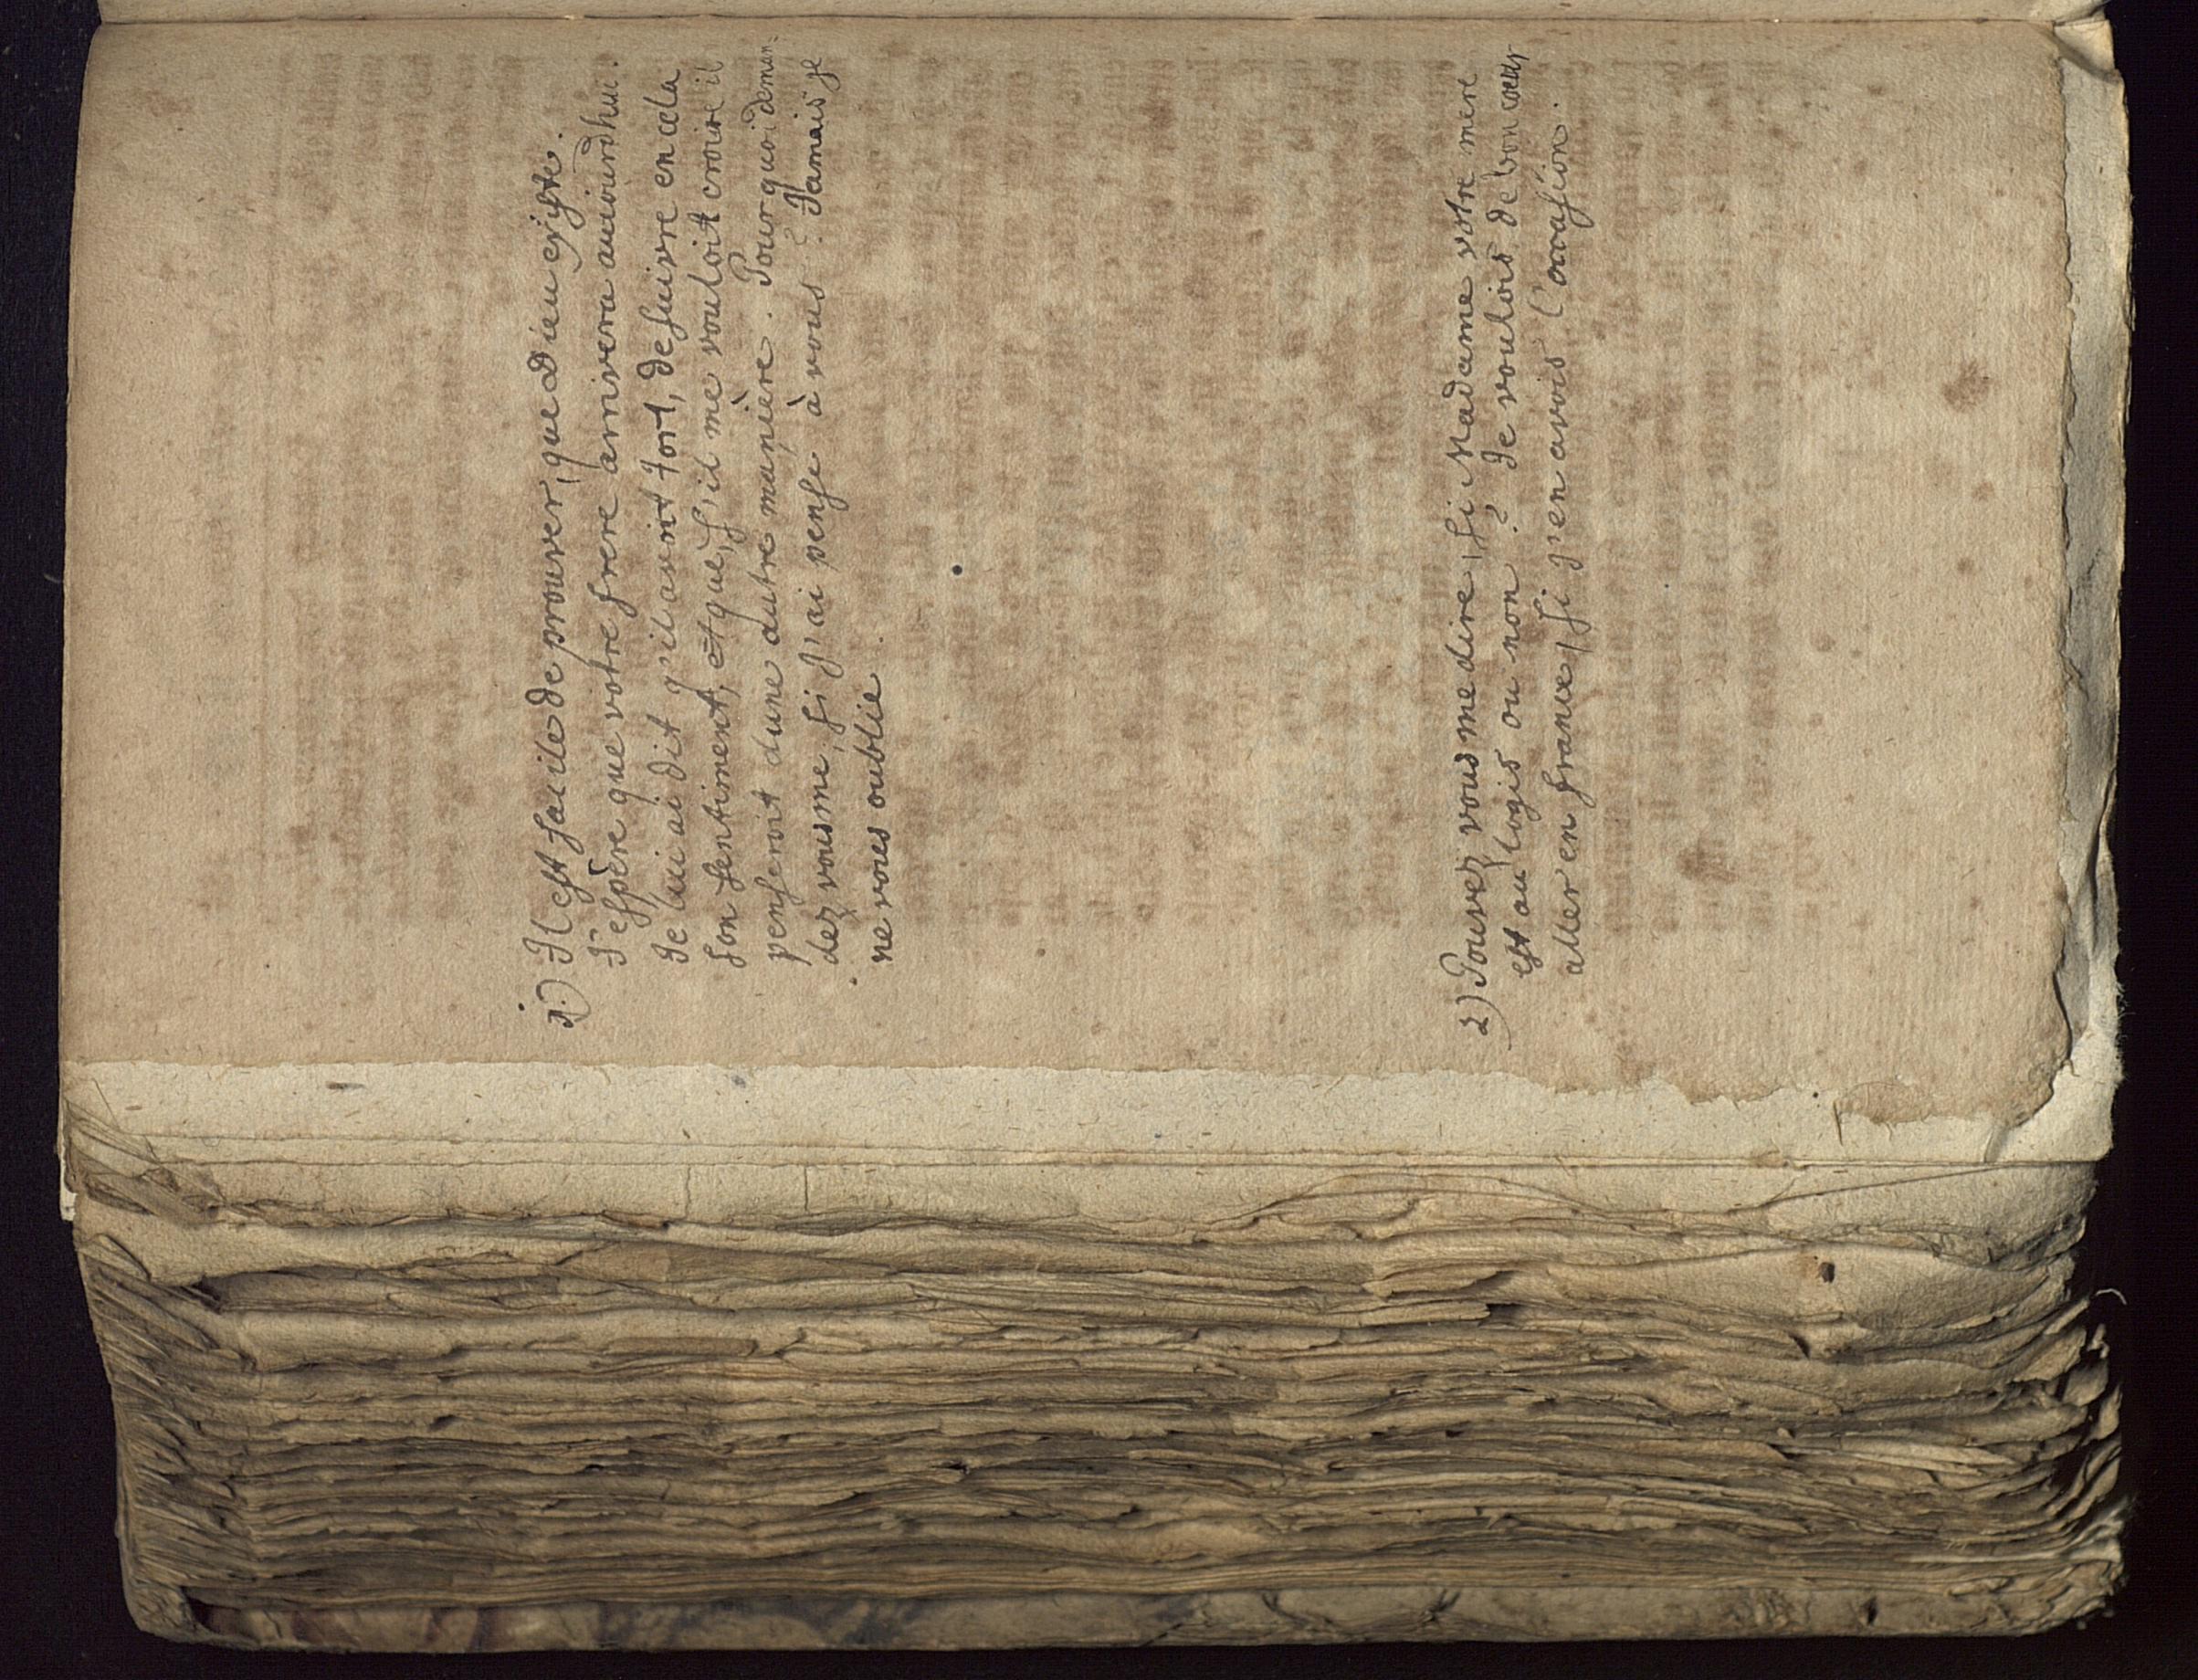 1.) Il est facile de prouver, que Dieu existe.
J'espère que votre frere arrivera aujourdhui.
Je lui ai dit q'il avoit tort, de suivre en cela
son sentiment, et que, s'il me vouloit croire il
penseroit dune autre manière. Pourquoi deman-
dez vous me, si j'ai pensé à vous? Jamais je
ne vous oublie.
2) Pouvez vous me dire, si Madame votre mere
est au logis ou non? Je voulois de bon coeur
aller en france, si j'en avois l'occasion.